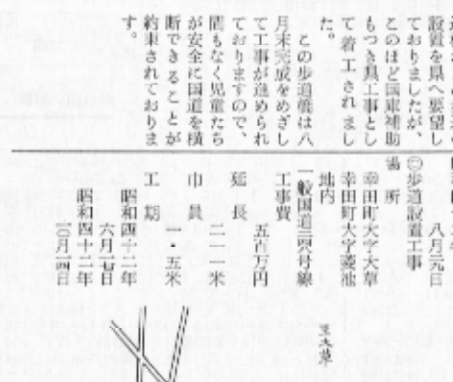 設置を県へ要望し
ておりましたが、
このほど国庫補助
もつき県工事とし
て着工されまし
た。
この歩道橋は八
月末完成をめざし
て工事が進められ
ておりますので、
間もなく児童たち
が安全に国道を横
断できることが
約束されておりま
す。
八月三〇日
◎歩道設置工事
場所
幸田町大字大草
幸田町大字菱池
地内
一般国道二四八号線
工事費
五百万円
延長
二一一米
巾員
一・五米
工期
昭和四十二年
六月一七日
昭和四十二年
一〇月一四日
至大草